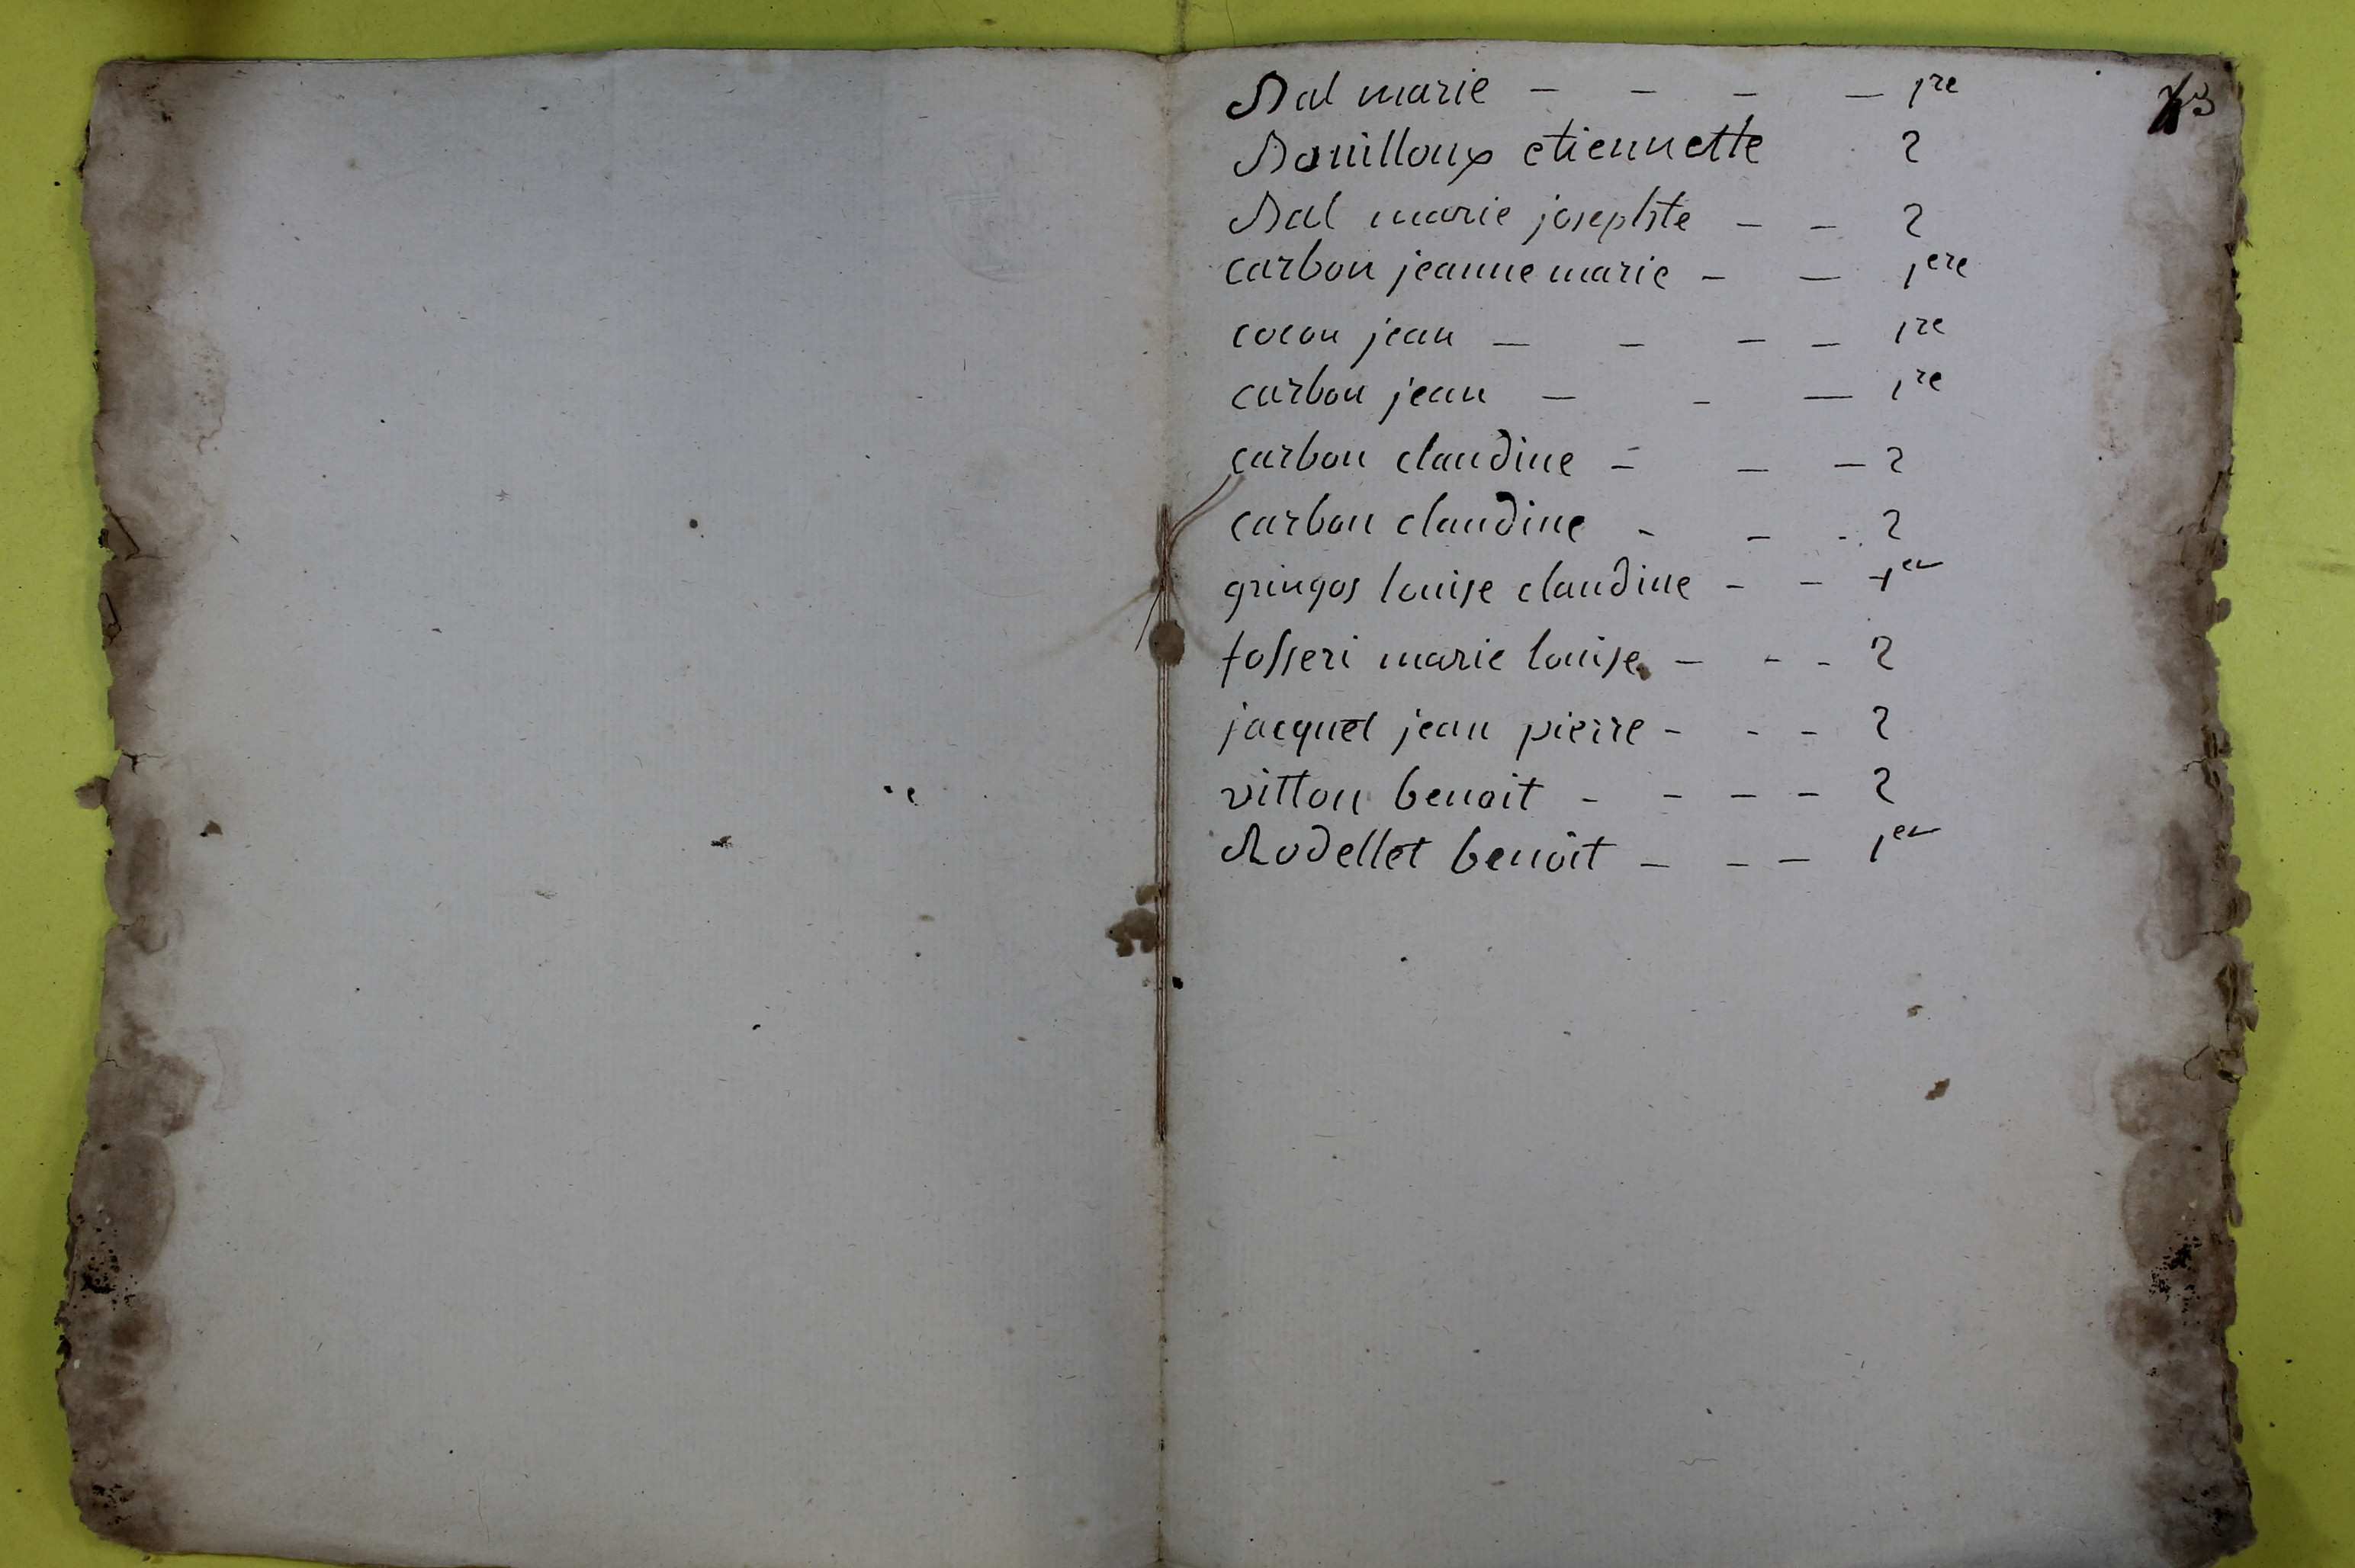 Bal marie – – – – 1re
Bouilloux etiennette 2
Bal marie josephte – – 2
carbon jeanne marie – – 1ere
cocon jean – – – – 1re
carbon jean – – – 1re
carbon claudine – – – 2
carbon claudine – – – 2
gringos louise claudine – – 1er
fosseri marie louise – – – 2
jacquet jean pierre – – – 2
vitton benoit – – – – 2
Rodellet benoît – – – 1er